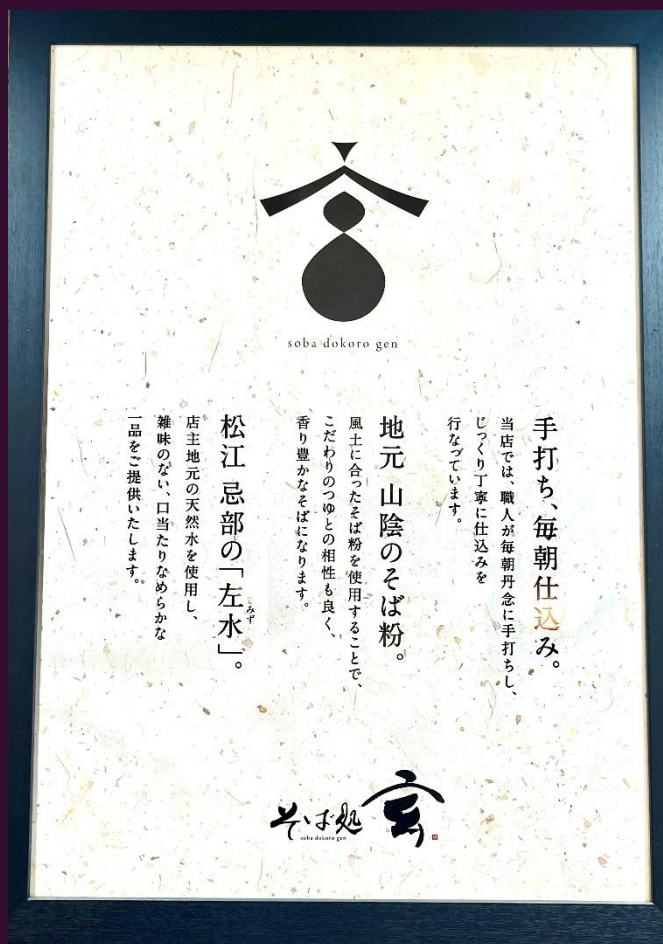 soba dokoro gen
手打ち、毎朝仕込み。
当店では、職人が毎朝丹念に手打ちし、
じっくり丁寧に仕込みを
行なっています。
地元 山陰のそば粉。
風土に合ったそば粉を使用することで、
こだわりのつゆとの相性も良く、
香り豊かなそばになります。
松江 忌部の「左水」。
こみず
店主地元の天然水を使用し、
雑味のない、口当たりなめらかな
一品をご提供いたします。
そば処 玄
soba dokoro gen